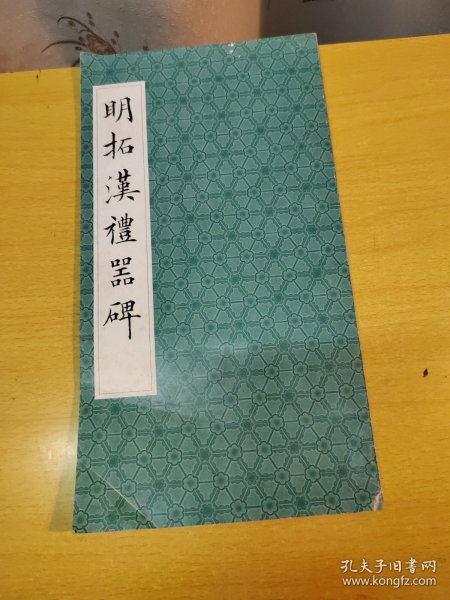 明拓漢禮器碑
孔夫子旧书网
www.kongfz.com